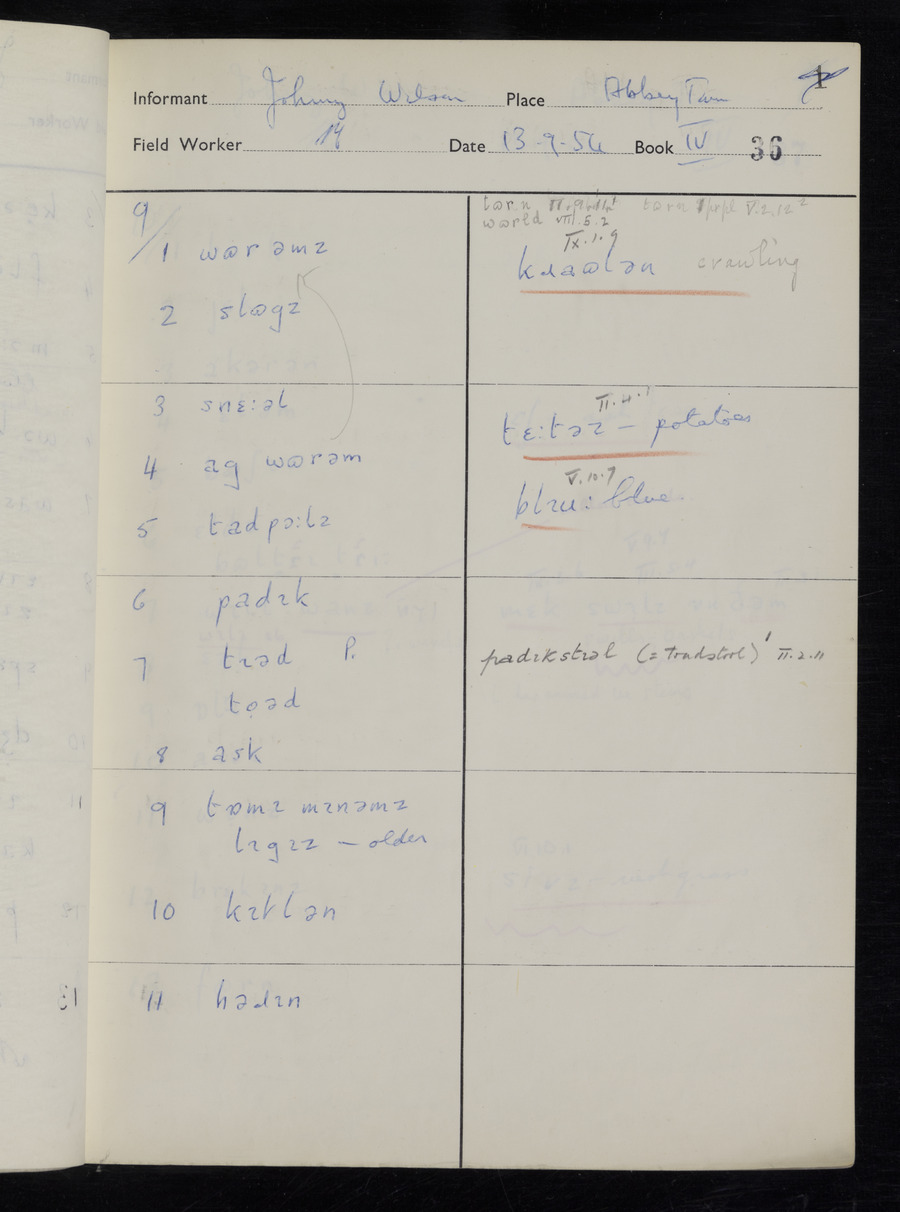 Informant Johnny Wilson Place Abbey Town
Field Worker Date 13-9-54 Book IV 36
9/1 wɒrəmz
2 slɒgz
3 snɛ:əl
4 ag wɒrəm
5 tadpɔ:lz
6 padɪk
7 tɪəd P.
tọəd
8 ask
9 tɒmɪ mɪnəmz
lɪgɪz – older
10 kɪtlən
11 hɛdɪn
tɒrn
world VIII.5.2
IX.1.9
crawling
II.4.1
tɛ:təz – potatoes
V.10.7
blɪu: blue.
padɪkstɪəl (= Toadstool)' II.2.11